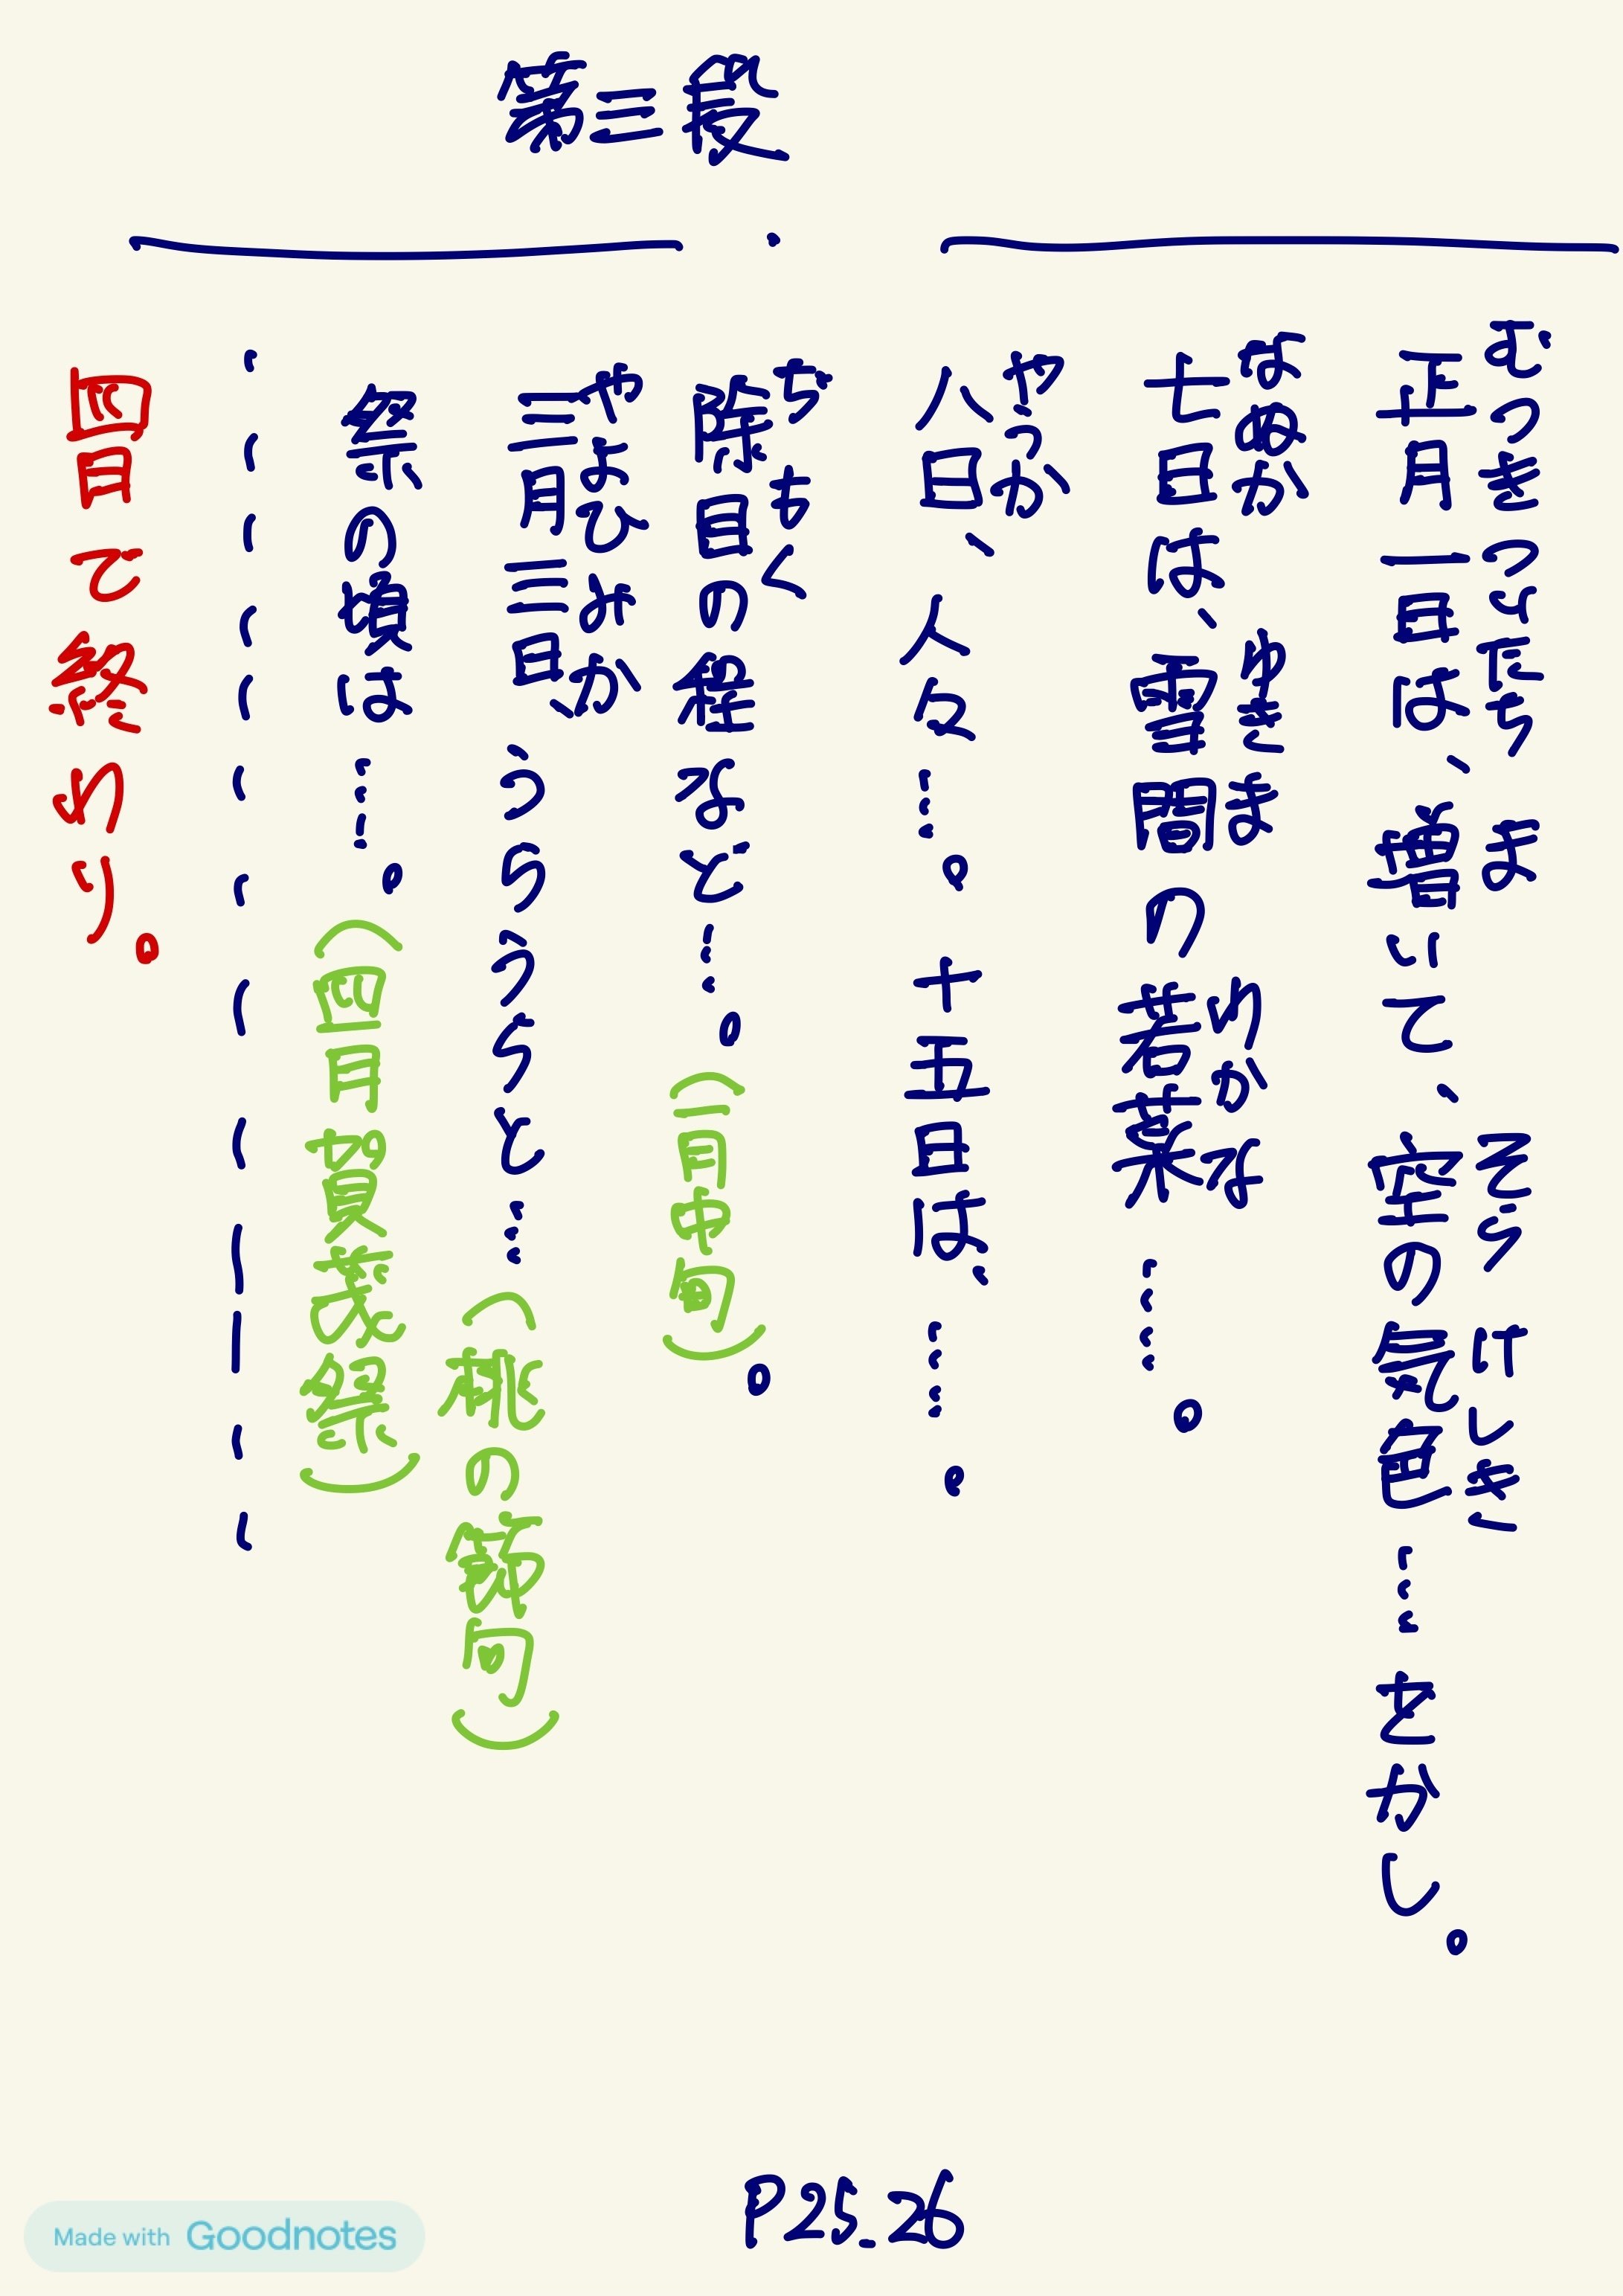 第三段
むつき ついたち ま そら けしき
正月一日は、増いて、空の気色……をかし。
なぬか ゆきま わかな
七日は、雪間の若菜……。
やうか
八日、人々……。十五日は、……。
ぢ もく
除目の程など……。(一月中旬)。
やよひ みか
三月三日、うらうらと……(桃の節句)
祭の頃は……。(四月賀茂祭)
四月で終わり。
P25_26
Made with Goodnotes